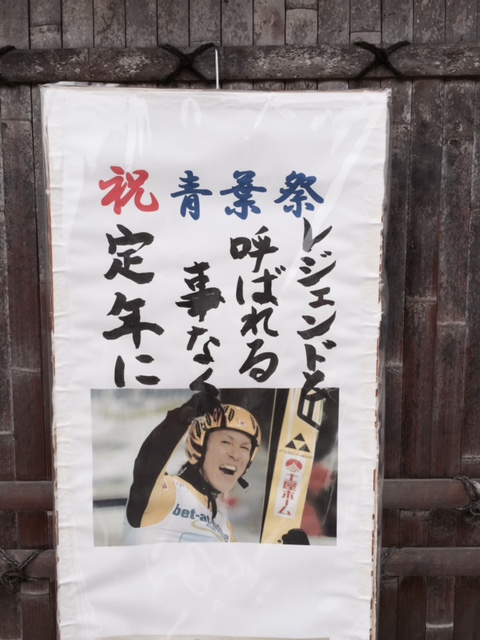 祝 青葉祭
レジェンドと
呼ばれる
事なく
定年に
bet-a
土屋ホーム